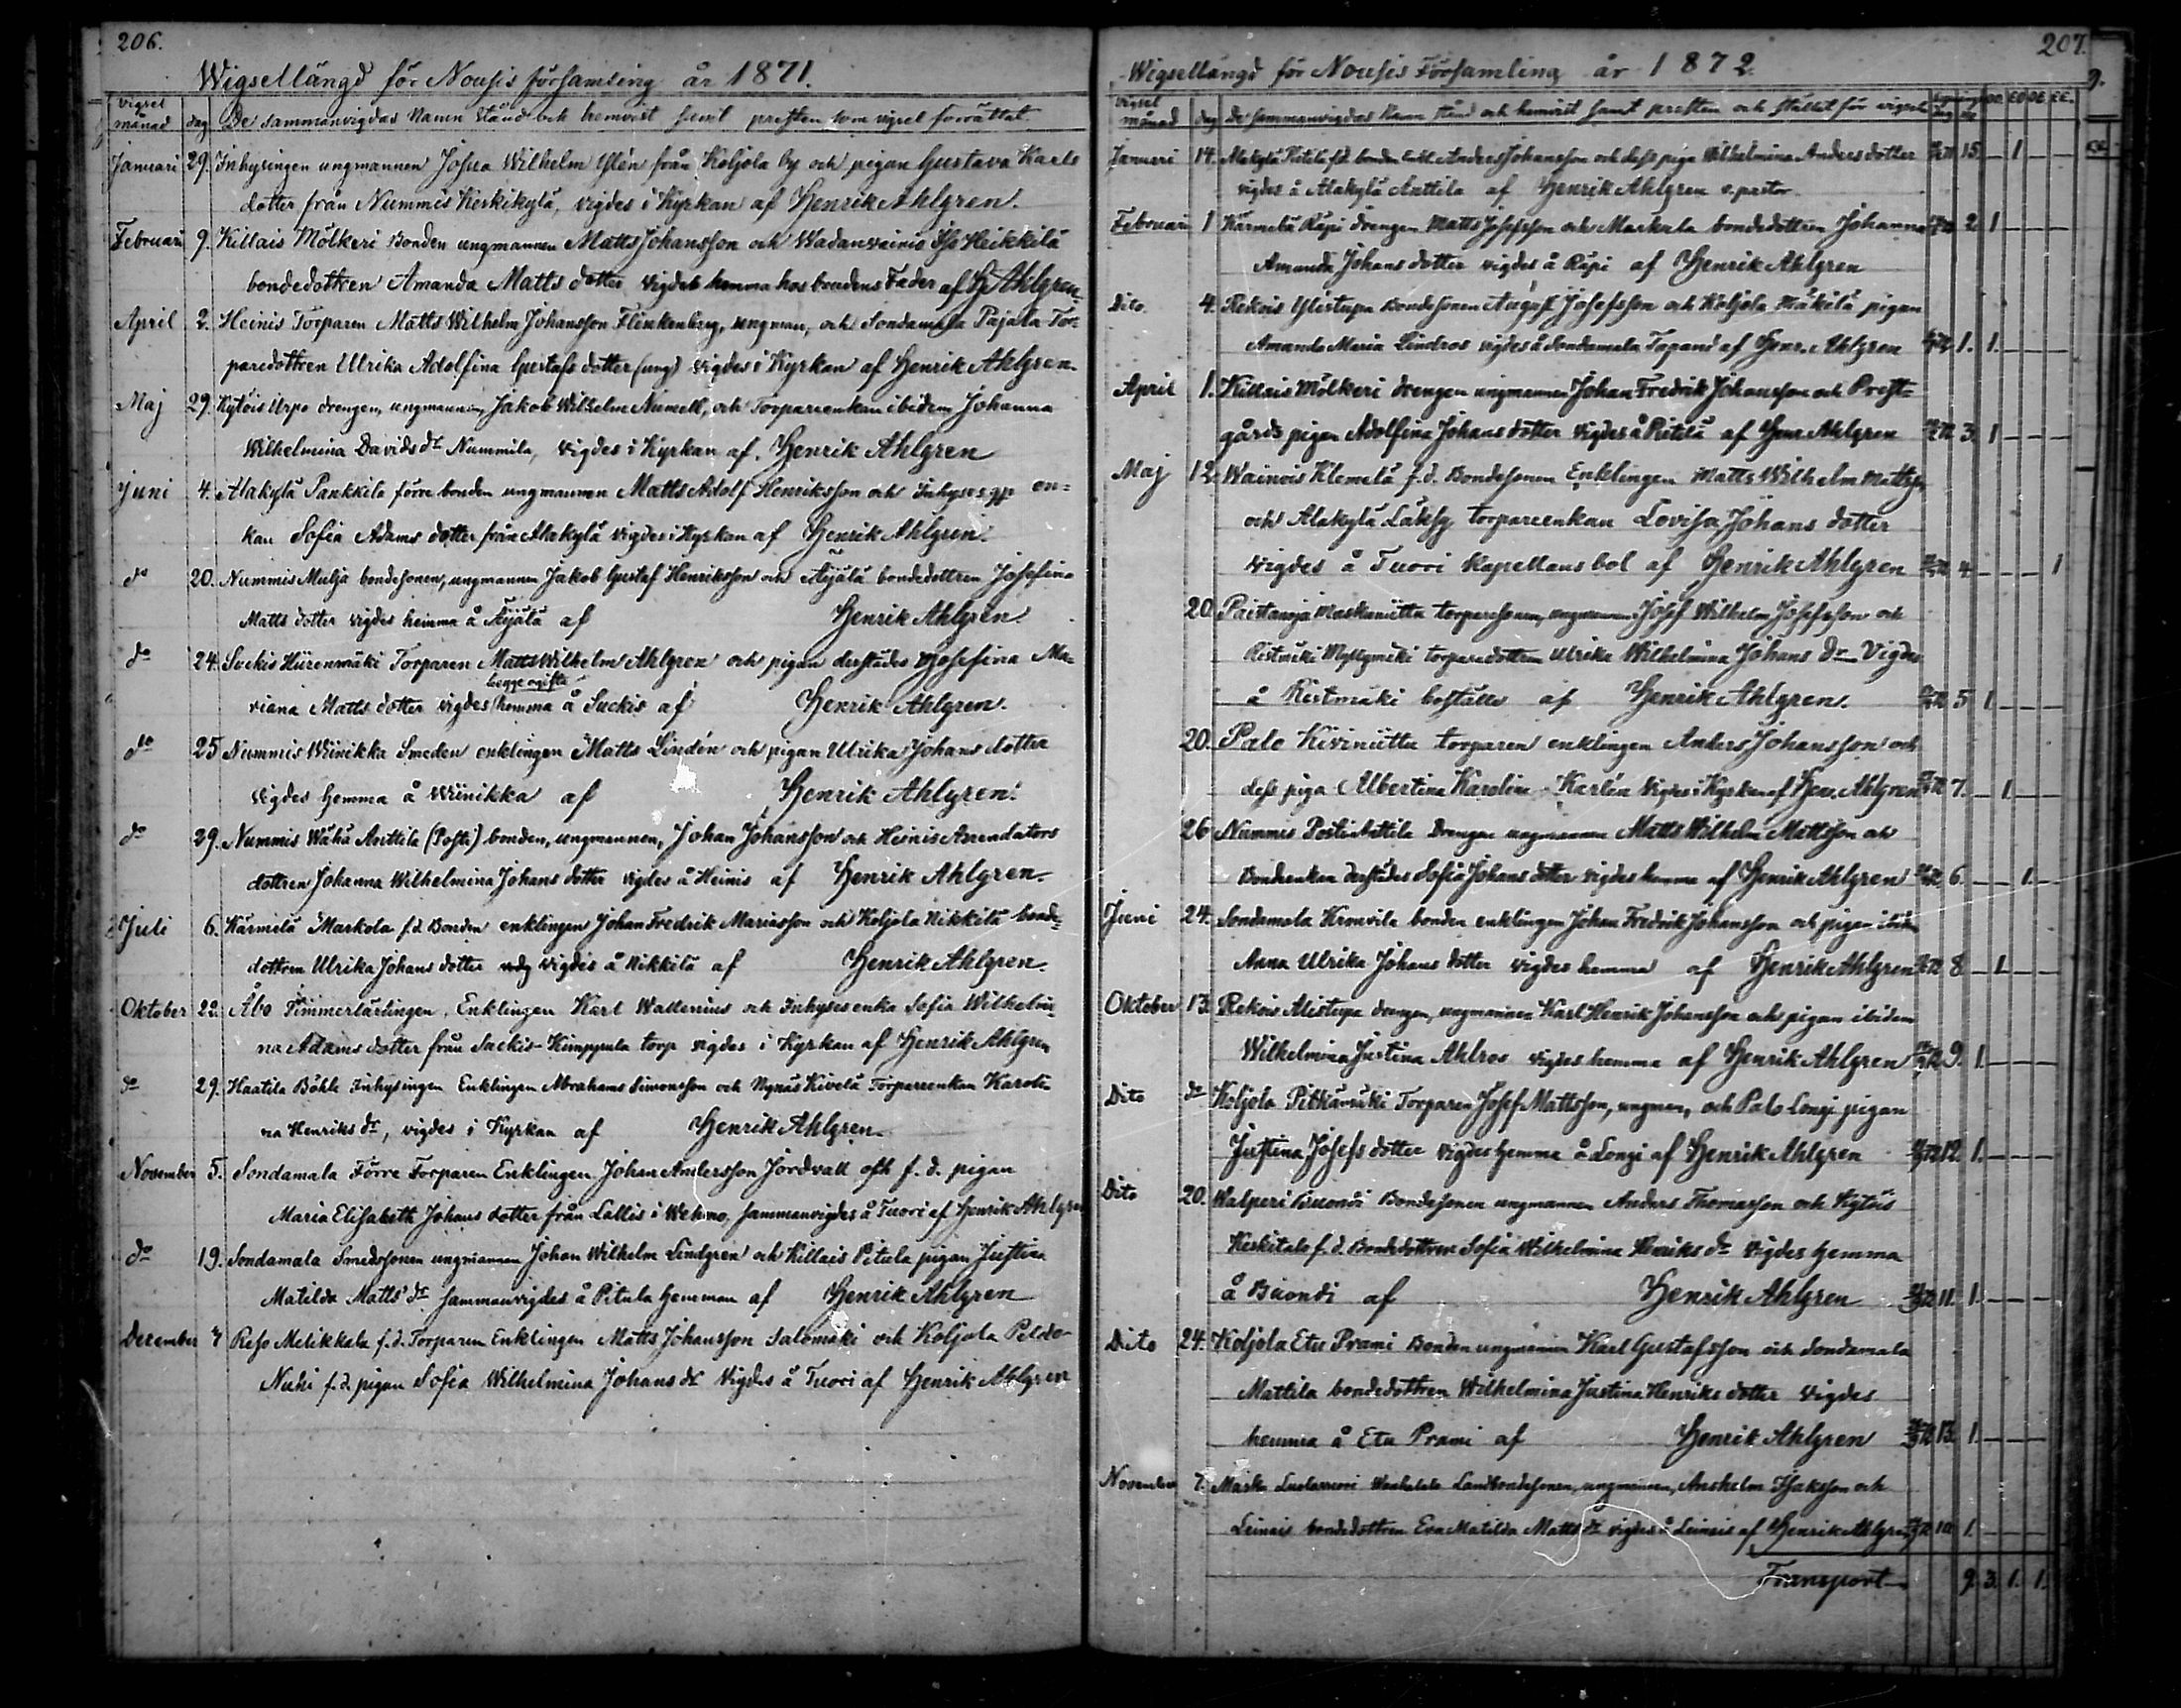 206.
Wigsellängd för Nousis församling år 1871.
vigsel
månad dag De sammanvigdas Namn Stånd och hemvist samt presten som vigsel förrättat
Januari 29. Inhysingen ungmannen Josua Wilhelm Ylén från Koljola by och pigan Gustava Karls
dotter från Nummis Keskikylä, vigdes i Kyrkan af Henrik Ahlgren.
Februari 9. Killais Mölkeri Bonden ungmannen Matts Johansson och Wadanvainio Iso Heikkilä
bondedottren Amanda Matts dotter vigdes hemma hos brudens Fader af H Ahlgren
April 2. Heinis Torparen Matts Wilhelm Johansson Flinkenberg, ungman, och Sondamala Pajala Tor-
paredottren Ulrika Adolfina Gustafs dotter (ung) vigdes i Kyrkan af Henrik Ahlgren.
Maj 29. Kytöis Urpo drengen, ungmannen, Jakob Wilhelm Numell, och Torpareenkan ibidem Johanna
Wilhelmina Davids dr Nummila, vigdes i Kyrkan af Henrik Ahlgren
Juni 4. Alakylä Pankkila förre bonden ungmannen Matts Adolf Henriksson och Inhyses en=
kan Sofia Adams dotter från Alakylä vigdes i Kyrkan af Henrik Ahlgren.
do 20. Nummis Mulja bondesonen, ungmannen Jakob Gustaf Henriksson och Äijälä bondedottren Josefina
Matts dotter vigdes hemma å Äijälä af Henrik Ahlgren
do 24. Suckis Hiirenmäki Torparen Matts Wilhelm Ahlgren och pigan derstädes Josefina Ma-
begge ogifta
riana Matts dotter vigdes hemma å Suckis af Henrik Ahlgren.
do 25 Nummis Wiinikka Smeden enklingen Matts Lindén och pigan Ulrika Johans dotter
vigdes hemma å Wiinikka af Henrik Ahlgren.
do 29. Nummis Wähä Anttila (Posti) bonden, ungmannen, Johan Johansson och Heinis Arrendators
dottren Johanna Wilhelmina Johans dotter vigdes å Heinis af Henrik Ahlgren.
Juli 6. Kärmelä Markola f.d. Bonden enklingen Johan Fredrik Mariasson och Koljola Nikkilä bonde=
dottren Ulrika Johans dotter vigdes å Nikkilä af Henrik Ahlgren.
Oktober 22. Åbo Timmerlärlingen, Enklingen Karl Wallenius och Inhyses enka Sofia Wilhelmi
na Adams dotter från Suckis-Kumppula torp vigdes i Kyrkan af Henrik Ahlgren
do 29. Haatila Böhle Inhysingen Enklingen Abrahams Simonsson och Nynäs Kivelä Torpareenkan Karoli-
na Henriks dr, vigdes i Kyrkan af Henrik Ahlgren.
November 5. Sondamala Förre Torparen Enklingen Johan Andersson Jordvall och f. d. pigan
Maria Elisabeth Johans dotter från Lallis i Wehmo, sammanvigdes å Tuori af Henrik Ahlgren
do 19. Sondamala Smedssonen ungmannen Johan Wilhelm Lindgren och Killais Pitula pigan Justina
Matilda Matts dr sammanvigdes å Pitula hemman af Henrik Ahlgren
December 7 Reso Merikkala f.d. Torparen Enklingen Matts Johansson Salomäki och Koljola Peldo-
Nuki f.d. pigan Sofia Wilhelmina Johans dr vigdes å Tuori af Henrik Ahlgren
207.
Wigsellängd för Nousis Församling år 1872.
vigsel
månad dag De sammanvigdas Namn stånd och hemvist samt presten och stället för vigseln
Januari 14. Alakylä Pietilä f.d. bonden Enkl. Anders Johansson och dess piga Wilhelmina Anders dotter 15. 1
vigdes å Alakylä Anttila af Henrik Ahlgren v. pastor
Februari 1 Kärmelä Räpi drengen Matts Josefsson och Markula bondedottren Johanna 2. 1
Amanda Johans dotter vigdes å Räpi af Henrik Ahlgren
Dito 4. Rekois Ylistupa Bondesonen August Josefsson och Koljola Mäkilä pigan
Amanda Maria Lindros vigdes å Sondamala Tapani af Henr. Ahlgren 1. 1.
April 1. Killais Mölkeri drengen ungmannen Johan Fredrik Johansson och Prest=
gårds pigan Adolfina Johans dotter vigdes å Pietilä af Henr Ahlgren 3. 1
Maj 12. Wainois Klemelä f.d. Bondesonen Enklingen Matts Wilhelm Mattsson
och Alakylä Laksy torpareenkan Lovisa Johans dotter
vigdes å Tuori Kapellansbol af Henrik Ahlgren 4 1
20. Paistanoja Maskuniitta torparesonen, ungmannen Josef Wilhelm Josefsson och
Ristmäki Myllymäki torparedottren Ulrika Wilhelmina Johans dr Vigdes
å Ristmäki boställe af Henrik Ahlgren. 5 1.
20. Palo Kiviniittu torparen enklingen Anders Johansson och
dess piga Albertina Karolina Karlén vigdes i Kyrkan af Henr. Ahlgren 7. 1.
26 Nummis Posti Anttila Drengen ungmannen Matts Wilhelm Mattsson och
Bondeenkan derstädes Sofia Johans dotter vigdes hemma af Henrik Ahlgren 6. 1.
Juni 24. Sondamala Krouvila bonden enklingen Johan Fredrik Johansson och pigan ibidem
Anna Ulrika Johans dotter vigdes hemma af Henrik Ahlgren 8 1.
Oktober 13. Rekois Alistupa drengen, ungmannen Karl Henrik Johansson och pigan ibidem
Wilhelmina Justina Ahlros vigdes hemma af Henrik Ahlgren 9. 1.
Dito do Koljola Pitkämäki Torparen Josef Mattsson, ungman, och Palo Longi pigan
Justina Josefs dotter vigdes hemma å Longi af Henrik Ahlgren 12. 1.
Dito 20. Walperi Buondi Bondesonen ungmannen Anders Thomasson och Kytöis
Keskitalo f.d. Bondedottren Sofia Wilhelmina Henriks dr vigdes hemma
å Buondi af Henrik Ahlgren 11. 1.
Dito 24. Koljola Etu Prami Bonden ungmannen Karl Gustafsson och Sondamala
Mattila bondedottren Wilhelmina Justina Henriks dotter vigdes
hemma å Etu Prami af Henrik Ahlgren 13. 1.
November 7. Masku Landbondesonen, ungmannen, Anshelm Isaksson och
Leinais bondedottren Eva Matilda Matts dr vigdes å Leinais af Henrik Ahlgren 10 1.
Transport 9. 3. 1. 1.